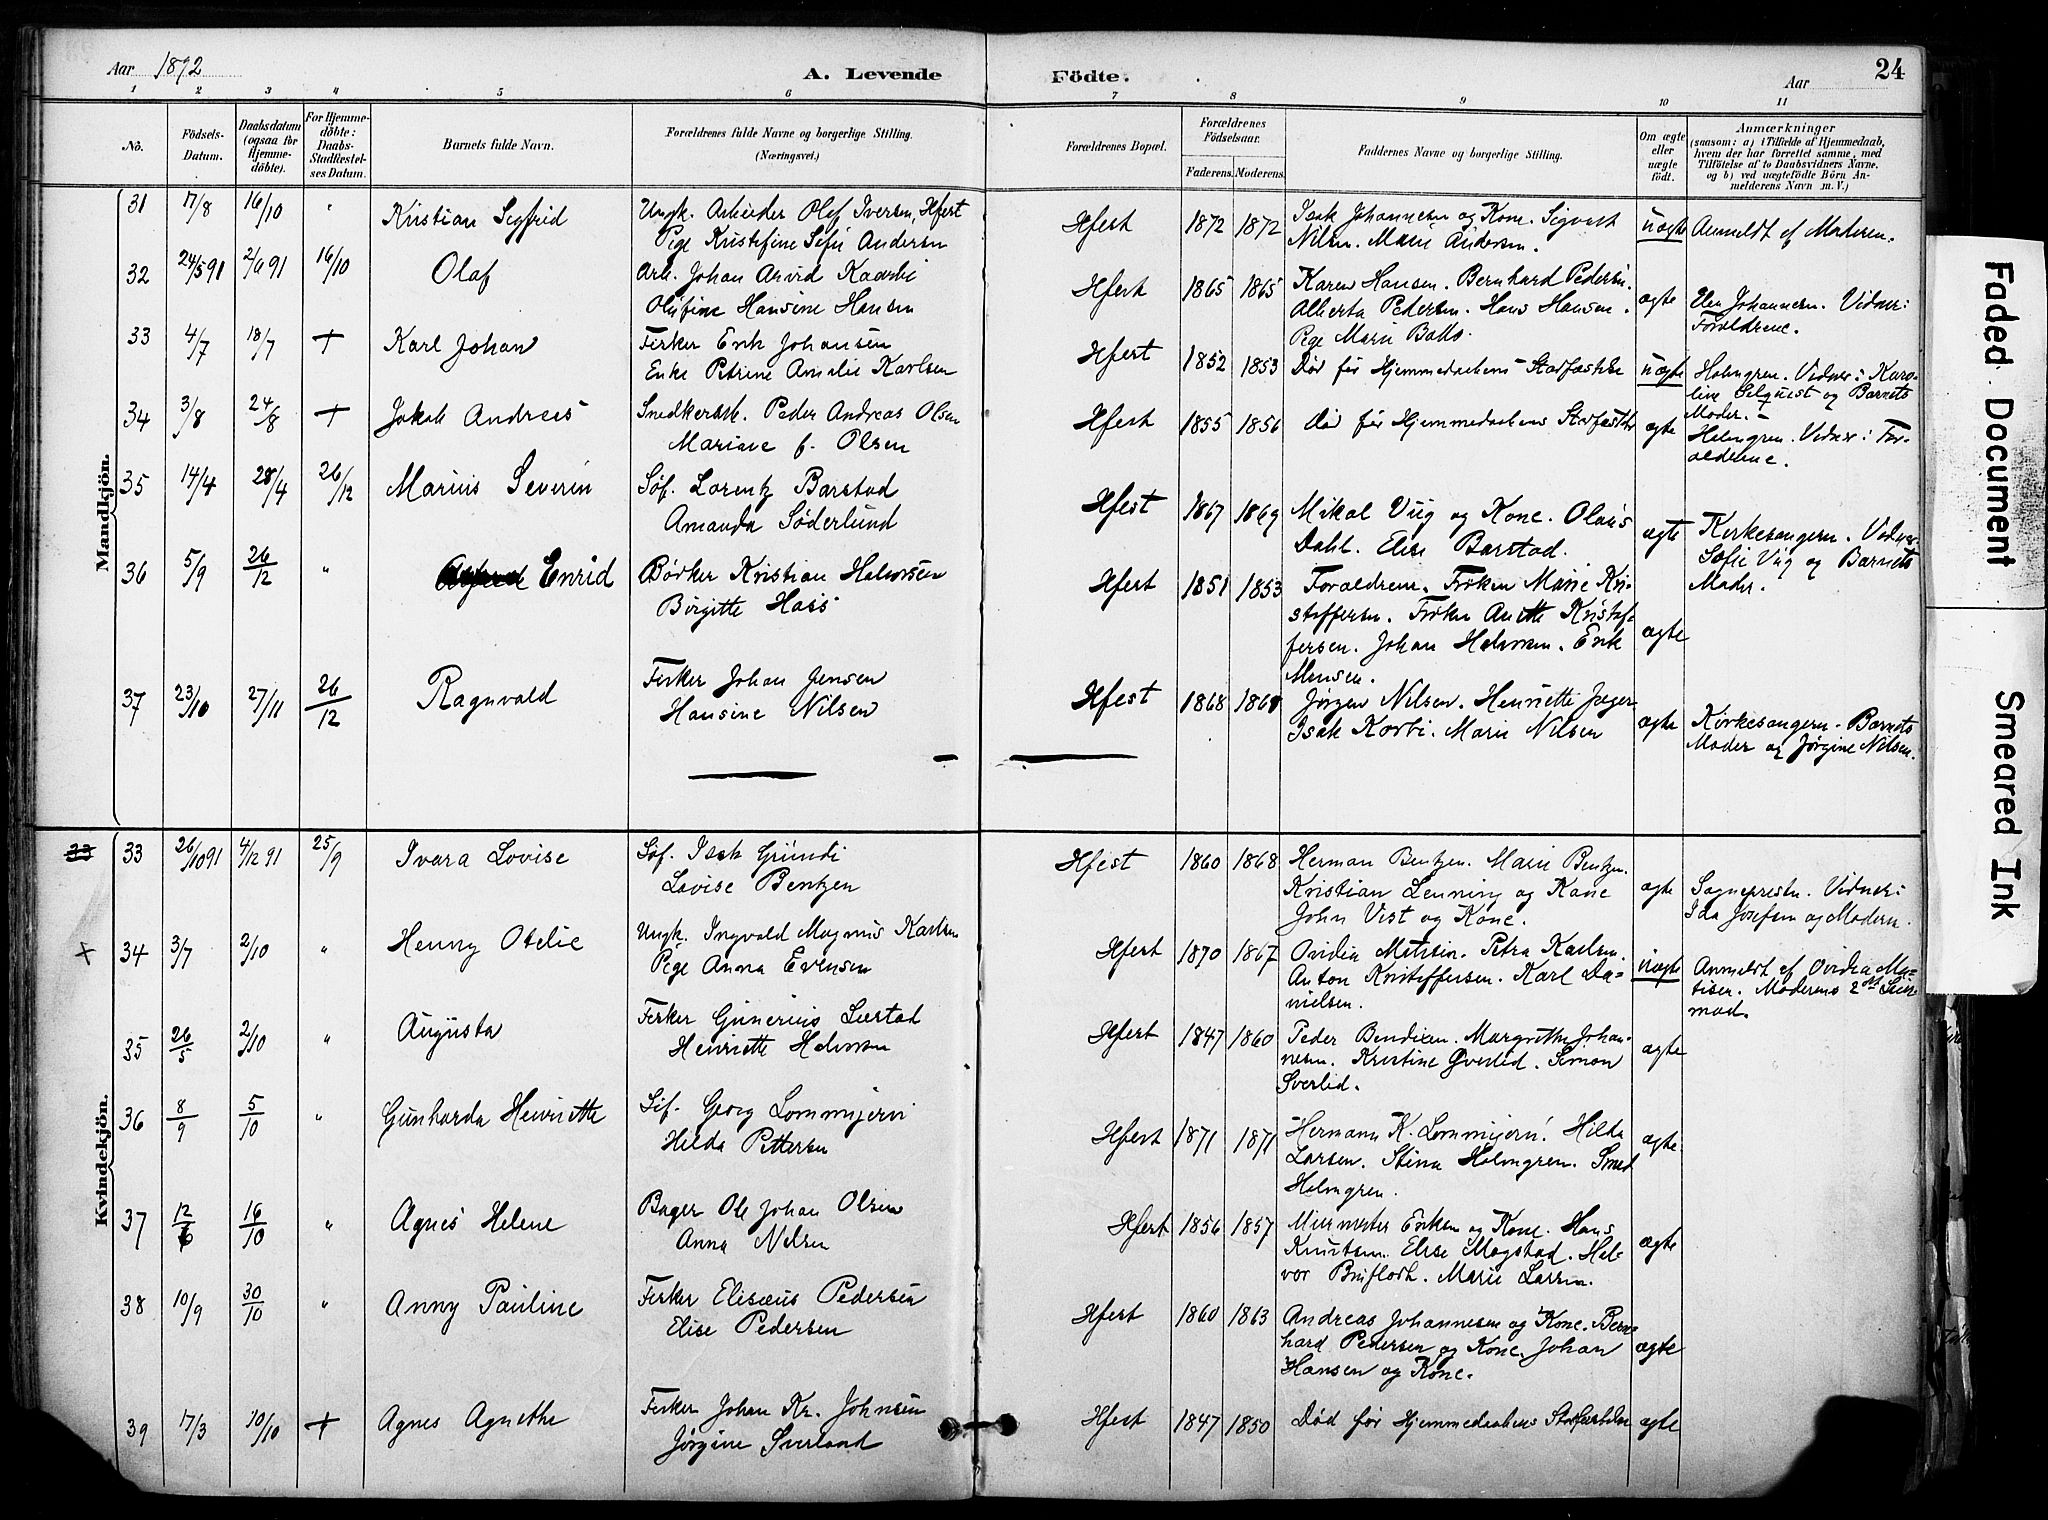 Aar 1892
A. Levende
Födte.
Aar
24
1 2 3 4 5 6 7 8 9 10 11
No.
Födsels-
Datum.
Daabsdatum
(ogsaa for
Hjemme-
döbte).
For Hjemme-
döbte:
Daabs-
Stadfæstel-
ses Datum.
Barnets fulde Navn.
Forældrenes fulde Navne og borgerlige Stilling.
(Næringsvei.)
Forældrenes Bopæl.
Forældrenes
Födselsaar.
Faderens. Moderens.
Faddernes Navne og borgerlige Stilling.
Om ægte
eller
uægte
födt.
Anmærkninger
(saasom: a) i Tilfælde af Hjemmedaab,
hvem der har forrettet samme, med
Tilföielse af to Daabsvidners Navne,
og b) ved uægtefödte Börn An-
melderens Navn m. V.)
Mandkjön.
31 17/8 16/10 " Kristian Sigfrid
Ungk. Arbeider Olaf Iversen, Hfest
Pige Kristofine Sofie Andersen
Hfest 1872 1872
Isak Johannesen og Kone. Sigvart
Nilsen. Marie Andersen.
uægte Anmeldt af Moderen.
32 24/5 91 2/6 91 16/10 Olaf
Arb. Johan Arvid Kaarbi
Olufine Hansine Hansen
Hfest 1865 1865
Karen Hansen. Bernhard Pedersen.
Alberta Pedersen. Hans Hansen.
Pige Marie Batts.
ægte Johannesen. Vidner:
Forældrene.
33 4/7 18/7 + Karl Johan
Fisker Erik Johansen
Enke Petrine Amalie Karlsen
Hfest 1852 1853
Død før Hjemmedaabens Stadfæstelse
uægte Holmgren. Vidner: Karo-
line Selquist og Barnets
Moder.
34 3/8 24/8 + Jakob Andreas
Snedkersv. Peder Andreas Olsen
Mariane f. Olsen
Hfest 1855 1856
Død før Hjemmedaabens Stadfæstelse
ægte Holmgren. Vidner: For-
ældrene.
35 14/4 28/4 26/12 Marius Severin
Søf. Lorentz Barstad
Amanda Söderlund
Hfest 1867 1869
Mikal Viig og Kone. Olaus
Dahl. Elise Barstad.
ægte Kirkesangeren. Vidner
Sofie Viig og Barnets
Moder.
36 5/9 26/12 " Enrid
Bødker Kristian Halvorsen
Birgitte Hass
Hfest 1851 1853
Forældrene. Frøken Marie Kri-
stoffersen. Frøken Anette Kristof-
fersen. Johan Halvorsen. Erik
Monsen.
ægte
37 23/10 27/11 26/12 Ragnvald
Fisker Johan Jensen
Hansine Nilsen
Hfest 1868
Jørgen Nilsen. Henriette Jæger
Isak Korbi. Marie Nilsen
ægte Kirkesangeren. Barnets
Moder og Jørgine Nilsen.
Kvindekjön.
33 33 26/10 91 4/12 91 25/9 Ivara Lovise
Søf. Isak Gründi
Lovise Bentzen
Hfest 1860 1868
Herman Bentzen. Marie Bentzen.
Kristian Lenning og Kone
John Vist og Kone.
ægte Sognepresten. Vidner:
Ida Josefsen og Moderen.
+ 34 3/7 2/10 " Henny Otelie
Ungk. Ingvald Magnus Karlsen
Pige Anna Evensen
Hfest 1870 1867
Ovidia Matisen. Petra Karlsen.
Anton Kristoffersen. Karl Da-
nielsen.
uægte Anmeldt af Ovidia Ma-
tisen. Moderens 2det Leier-
maal.
35 26/5 2/10 " Augusta
Fisker Gunerius Lerstad
Henriette Halvorsen
Hfest 1847 1860
Peder Bendixen. Margrethe Johan-
nesen. Kristine Sverlid. Simon
Sverlid.
ægte
36 8/9 5/10 " Gunharda Henriette
Søf. Georg Lommijervi
Hilda Pettersen
Hfest 1871 1871
Hermann K. Lommijervi. Hilda
Larsen. Stina Holmgren. Smed
Holmgren.
ægte
37 12/6 16/10 " Agnes Helene
Bager Ole Johan Olsen
Anna Nelsen
Hfest 1856 1857
Murmester Eriksen og Kone. Hans
Knutsen. Elise Magstad. Hal-
vor Brufladh. Marie Larsen.
ægte
38 10/9 30/10 " Anny Pauline
Fisker Elisæus Pedersen
Elise Pedersen
Hfest 1860 1863
Andreas Johannesen og Kone. Bern-
hard Pedersen og Kone. Johan
Hansen og Kone.
ægte
39 17/3 10/10 + Agnes Agnethe
Fisker Johan Kr. Johnsen
Jørgine Sverland
Hfest 1847 1850
Død før Hjemmedaabens Stadfæstelse
ægte
Faded Document
Smeared Ink